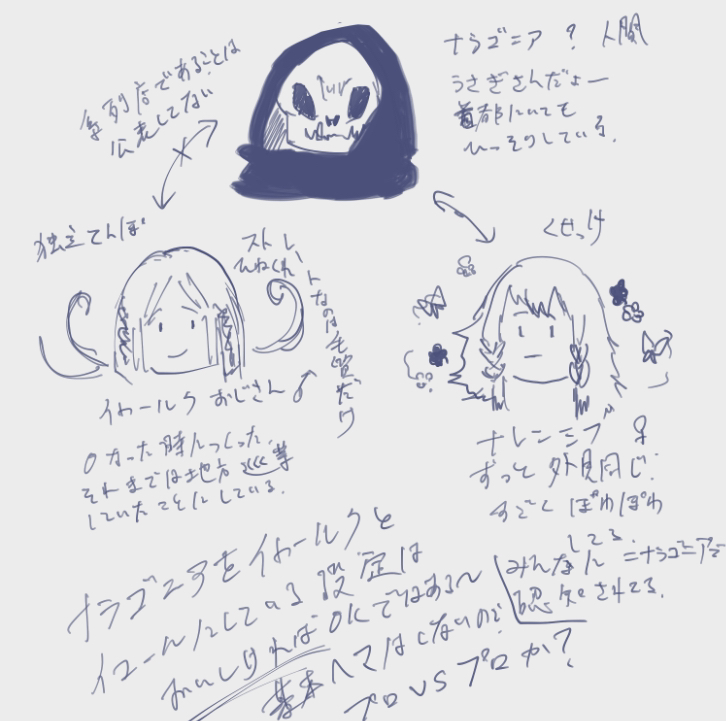 ナラゴニア ? 人間
うさぎさんだょー
首都にいても
ひっそりしている.
系列店であることは
公表してない
独立てんぽ
ストレートなのは毛質だけ
ひねくれ
くせっけ
イルールク おじさん ♂
0なった時につくった.
それまでは地方巡業
していたことにしている.
ナレンシフ ♀
ずっと外見同じ.
すごく ぽわぽわ
してる.
みんなに=ナラゴニアで
認知されてる.
ナラゴニアをイルールクと
イコールにしている設定は
おいしければOKではある〜
基本ヘマはしないので.
プロ VS プロか?